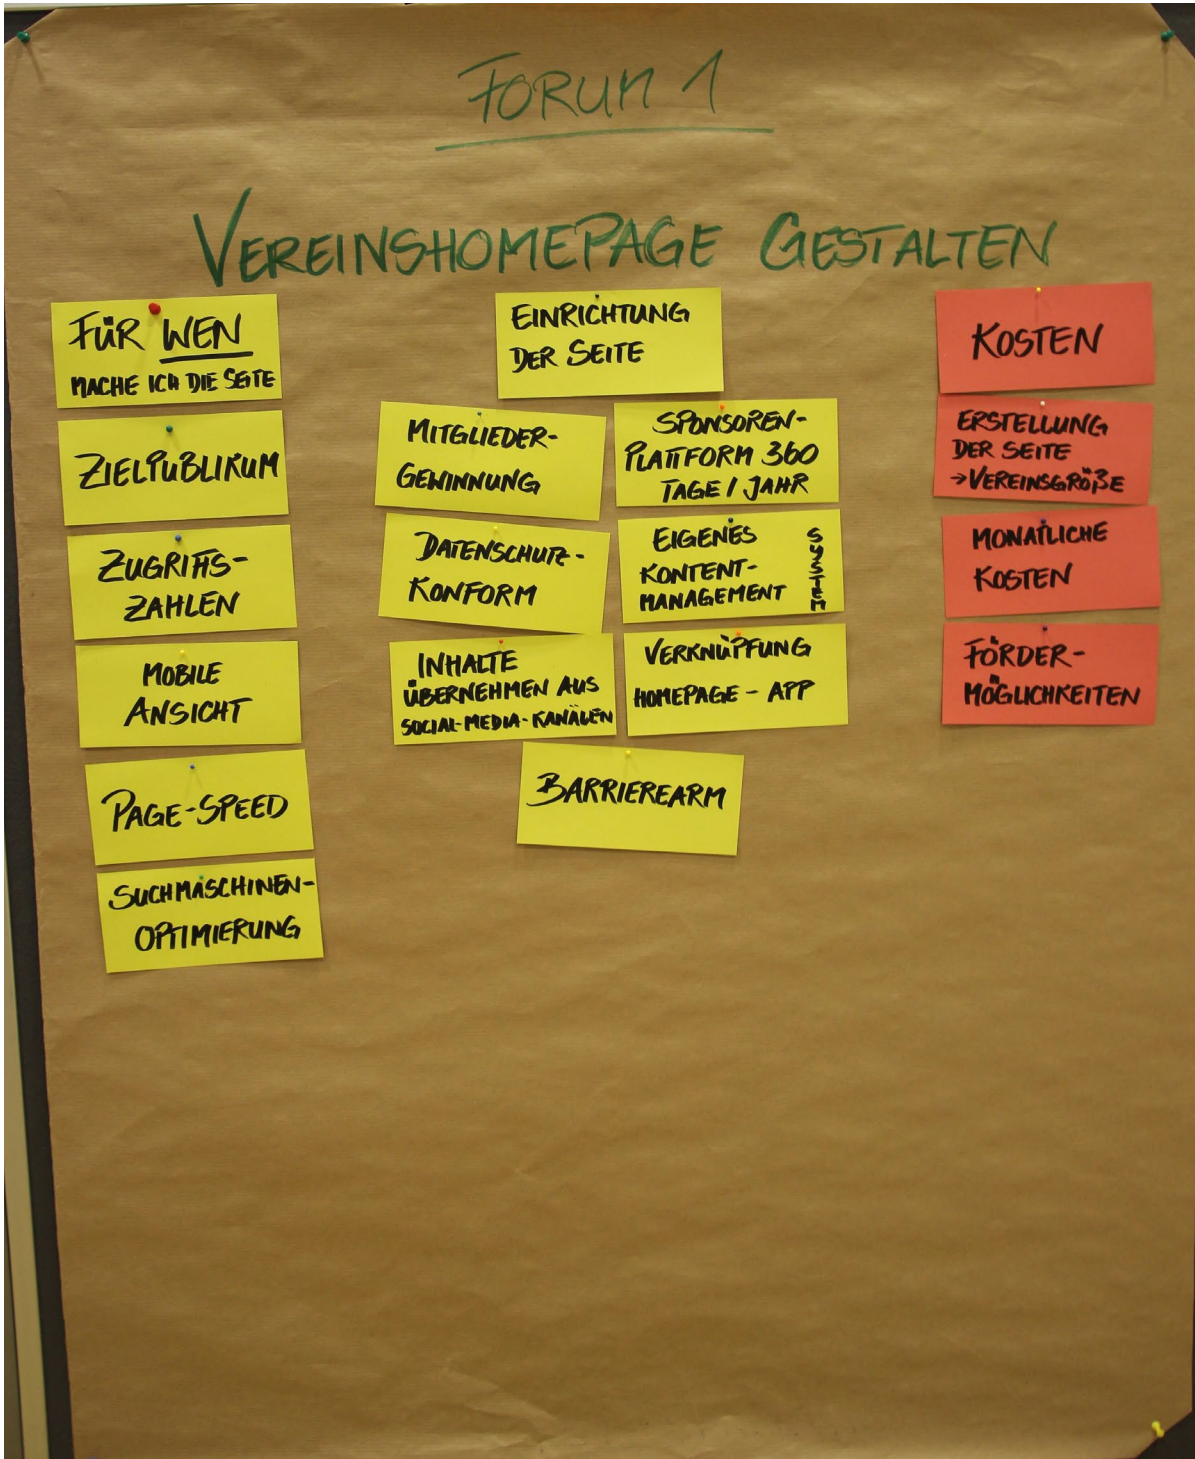 FORUM 1
VEREINSHOMEPAGE GESTALTEN
FÜR WEN
MACHE ICH DIE SEITE
ZIELPUBLIKUM
ZUGRIFFS-
ZAHLEN
MOBILE
ANSICHT
PAGE-SPEED
SUCHMASCHINEN-
OPTIMIERUNG
EINRICHTUNG
DER SEITE
MITGLIEDER-
GEWINNUNG
DATENSCHUTZ-
KONFORM
INHALTE
ÜBERNEHMEN AUS
SOCIAL-MEDIA-KANÄLEN
SPONSOREN-
PLATTFORM 360
TAGE / JAHR
EIGENES
KONTENT-
MANAGEMENT
SYSTEM
VERKNÜPFUNG
HOMEPAGE - APP
BARRIEREARM
KOSTEN
ERSTELLUNG
DER SEITE
→ VEREINSGRÖßE
MONATLICHE
KOSTEN
FÖRDER-
MÖGLICHKEITEN